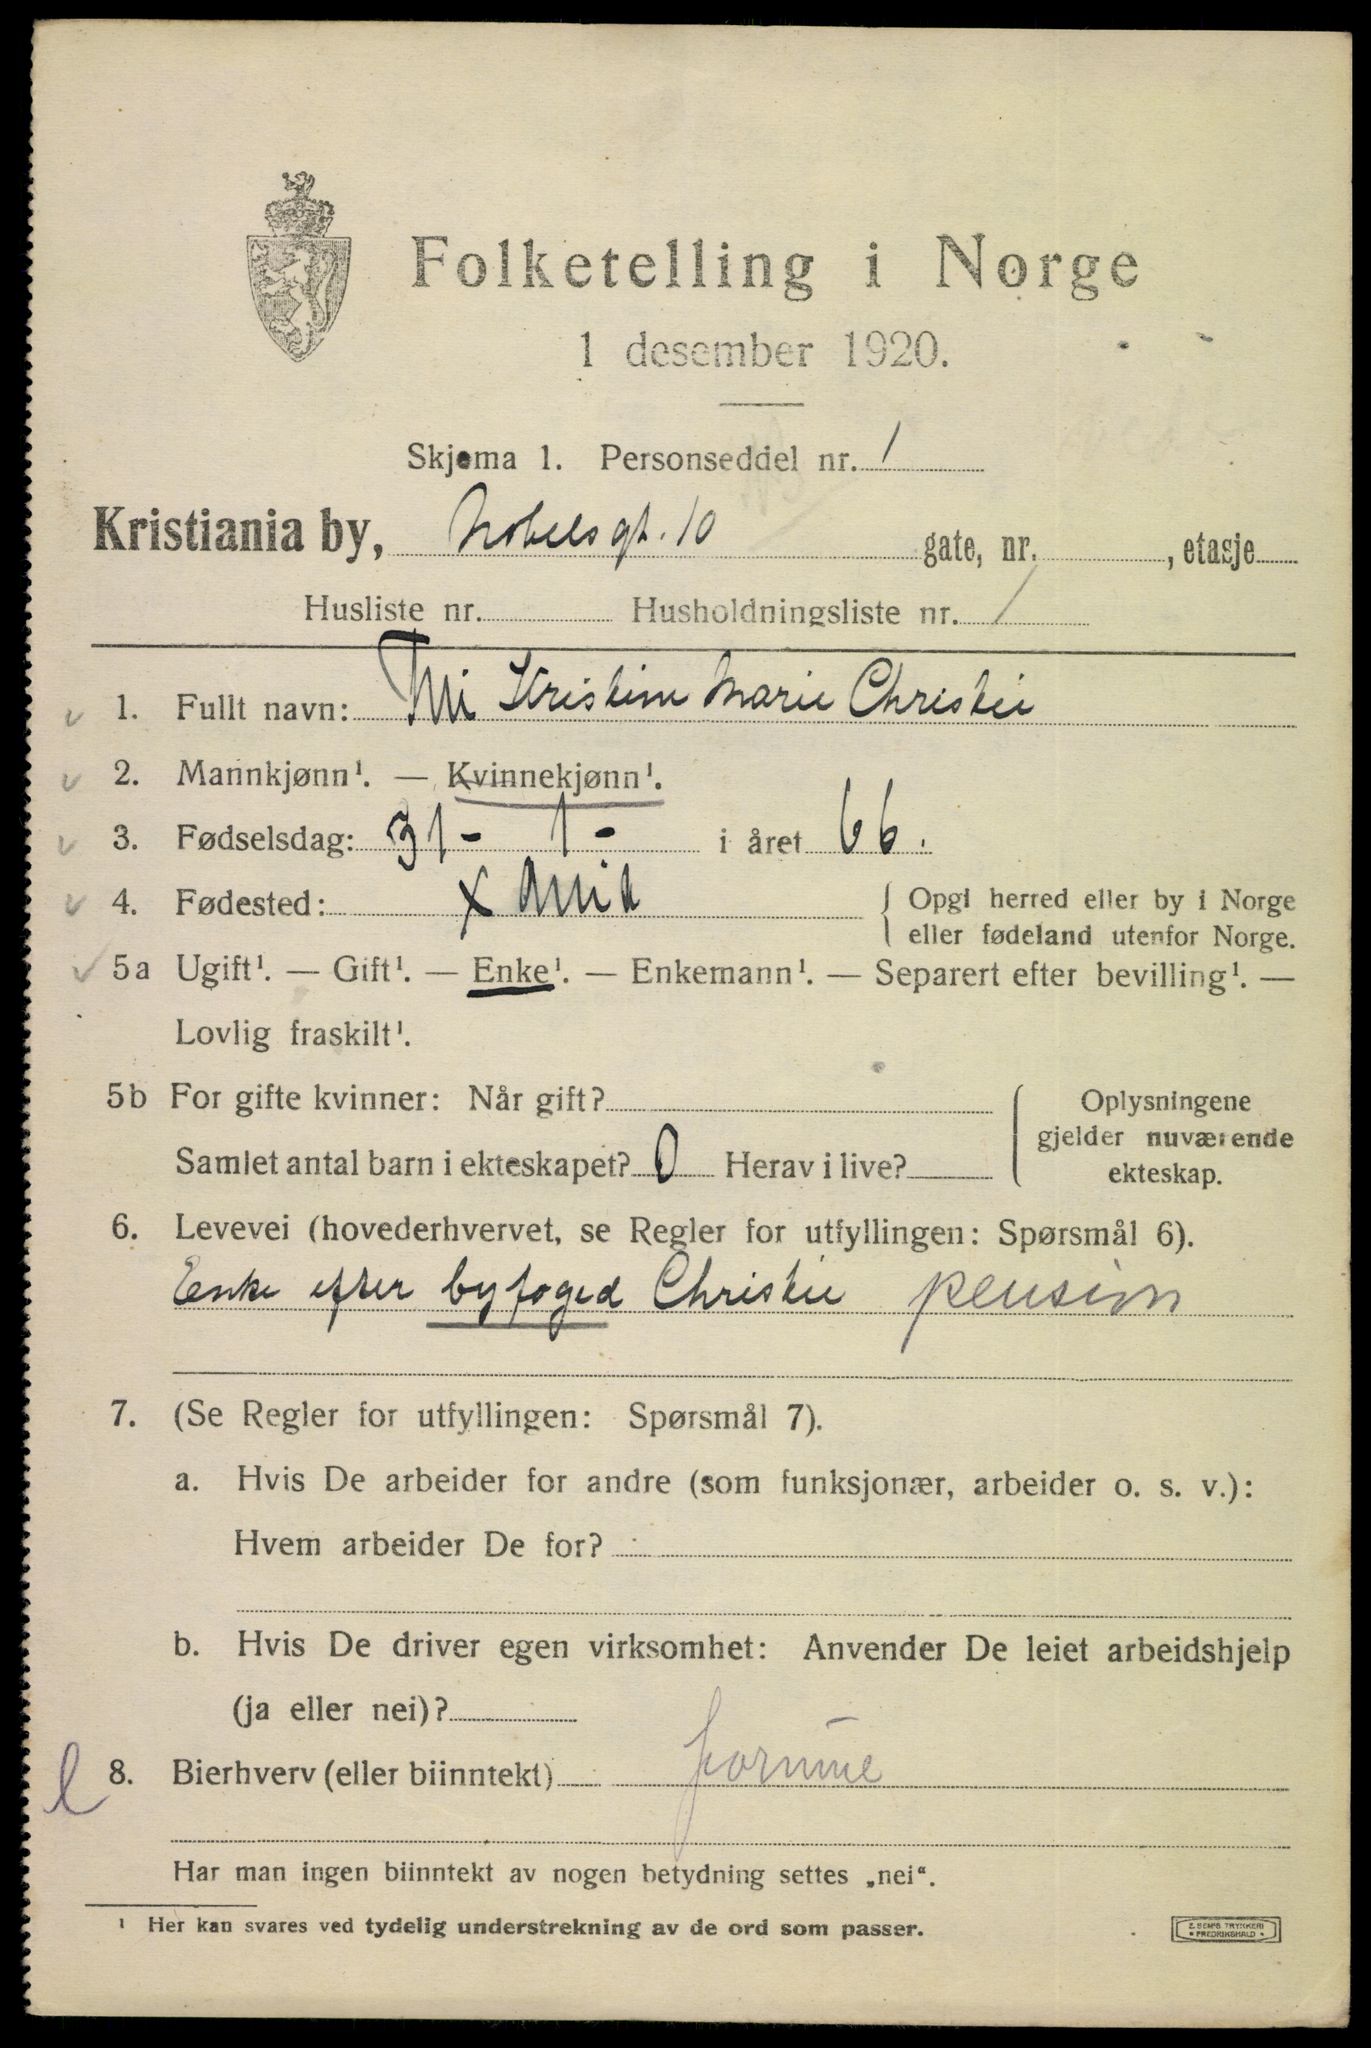 Folketelling i Norge
1 desember 1920.
Skjema 1. Personseddel nr. 1
Kristiania by, Nobelsgt. 10 gate, nr. , etasje
Husliste nr. Husholdningsliste nr. 1
1. Fullt navn: Kristine Marie Christie
2. Mannkjønn¹. — Kvinnekjønn¹.
3. Fødselsdag: 31 - 1 - i året 66.
4. Fødested: X ania { Opgi herred eller by i Norge
eller fødeland utenfor Norge.
5a Ugift¹. — Gift¹. — Enke¹. — Enkemann¹. — Separert efter bevilling¹. —
Lovlig fraskilt¹.
5b For gifte kvinner: Når gift? { Oplysningene
gjelder nuværende
Samlet antal barn i ekteskapet? 0 Herav i live? ekteskap.
6. Levevei (hovederhvervet, se Regler for utfyllingen: Spørsmål 6).
Enke efter byfoged Christie pension
7. (Se Regler for utfyllingen: Spørsmål 7).
a. Hvis De arbeider for andre (som funksjonær, arbeider o. s. v.):
Hvem arbeider De for?
b. Hvis De driver egen virksomhet: Anvender De leiet arbeidshjelp
(ja eller nei)?
8. Bierhverv (eller biinntekt) formue
Har man ingen biinntekt av nogen betydning settes „nei“.
¹ Her kan svares ved tydelig understrekning av de ord som passer.
E. SEM'S TRYKKERI
• FREDRIKSHALD •